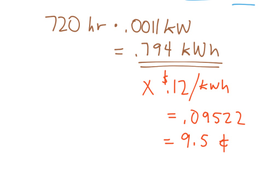 720 hr · .0011 kW
= .794 kWh
x $.12/kwh
= .09522
= 9.5 ¢